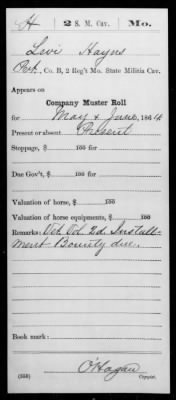 H 2 S. M. Cav. Mo.
Levi Hayns
Pvt., Co. B, 2 Reg't Mo. State Militia Cav.
Appears on
Company Muster Roll
for May & June, 1864
Present or absent Present
Stoppage, $ 100 for
Due Gov't, $ 100 for
Valuation of horse, $ 100
Valuation of horse equipments, $ 100
Remarks: Vet Vol 2d. Install-
ment Bounty due.
Book mark:
O'Hagan
(358) Copyist.